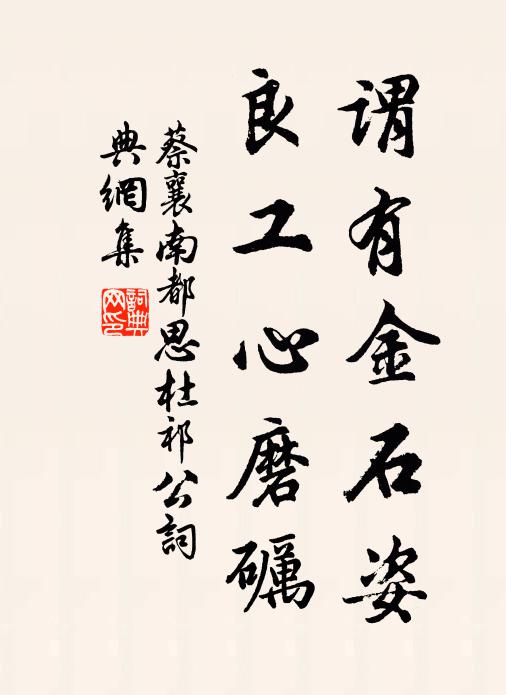 謂有金石姿
良工心磨礪
蔡襄南都思杜祁公詞
典網集
詞典網印